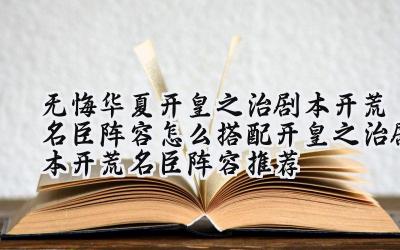 无悔华夏开皇之治剧本开荒
名臣阵容怎么搭配开皇之治剧
本开荒名臣阵容推荐